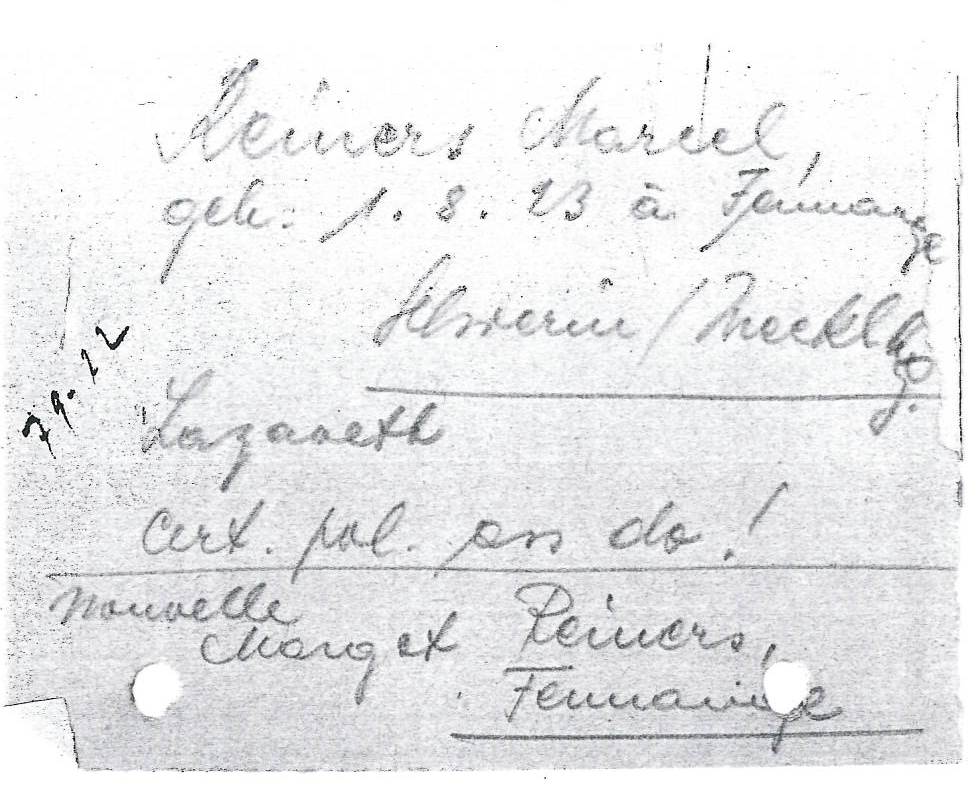 Reiners Marcel,
geb. 1. 8. 23 à Fennange
Schwerin / Mecklbg.
Lazareth
Cert. pol. ass do!
Nouvelle
Marget Reiners,
Fennange